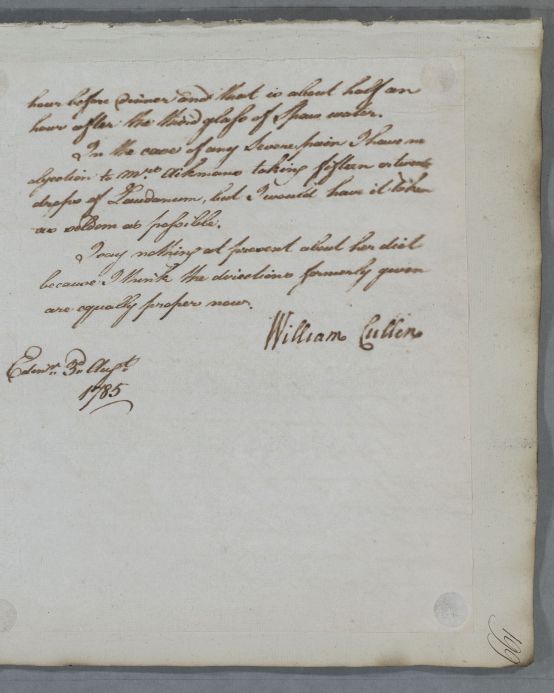 hour before Dinner and that is about half an
hour after the third glass of Spaw water.
In the case of any Severe pain I have no
objection to Mrs. Aikmans taking fifteen or twenty
drops of Laudanum, but I would have it taken
as seldom as possible.
I say nothing at present about her diet
because I think the directions formerly given
are equally proper now.
William Cullen
Edinr. 3d Augt.
1785